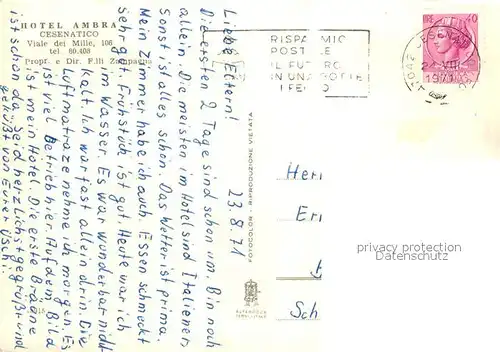 HOTEL AMBRA
CESENATICO
Viale dei Mille, 106
tel 80.408
Propr. e Dir. F.lli Zampagna
RISPARMIO
POSTALE
IL FUTURO
IN UNA
1971
40
23.8.71
Liebe Eltern!
Die ersten 2 Tage sind schon um. Bin noch
allein. Die meisten im Hotel sind Italiener.
Sonst ist alles schön. Das Wetter ist prima.
Mein Zimmer habe ich auch. Essen schmeckt
sehr gut. Frühstück ist gut. Heute war ich
im Wasser. Es war wunderbar nicht
kalt. Ich war fast allein drin. Die
Luftmatratze nehme ich morgen. Es
ist viel Betrieb hier. Auf dem Bild
ist mein Hotel. Die erste Bräune
ist schon da. Seid herzlichst gegrüßt und
geküßt von Eurer Uschi.
FOTOCOLOR - RIPRODUZIONE VIETATA
Herr
Eri
Sch
privacy overlay
Datenschutz